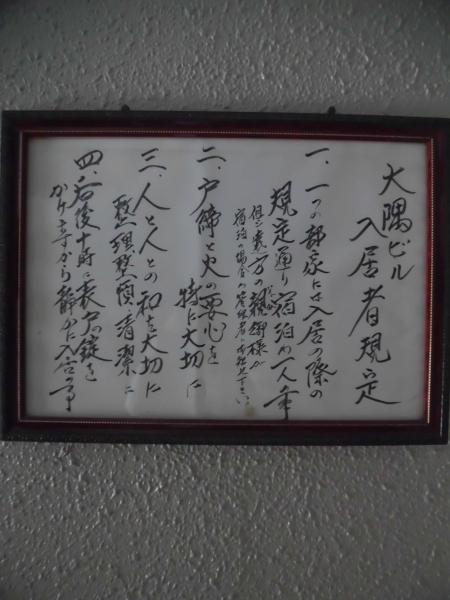 大隅ビル
入居者規定
一、一つの部家には入居の際の
規定通り宿泊の一人事
但し遠方の親御様が
宿泊の場合の管理者に
二、戸締と火の要心を
特に大切に
三、人と人との和を大切に
整理整頓清潔に
四、午後十時に表戸の錠を
かけますから静かに入舎の事